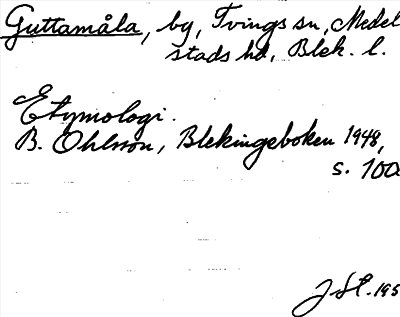 Guttamåla, by, Tvings sn, Medel
stads hd, Blek. l.
Etymologi.
B. Ohlsson, Blekingeboken 1948,
s. 100